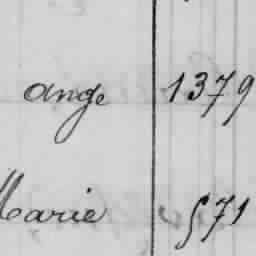 ange 1379
Marie 571